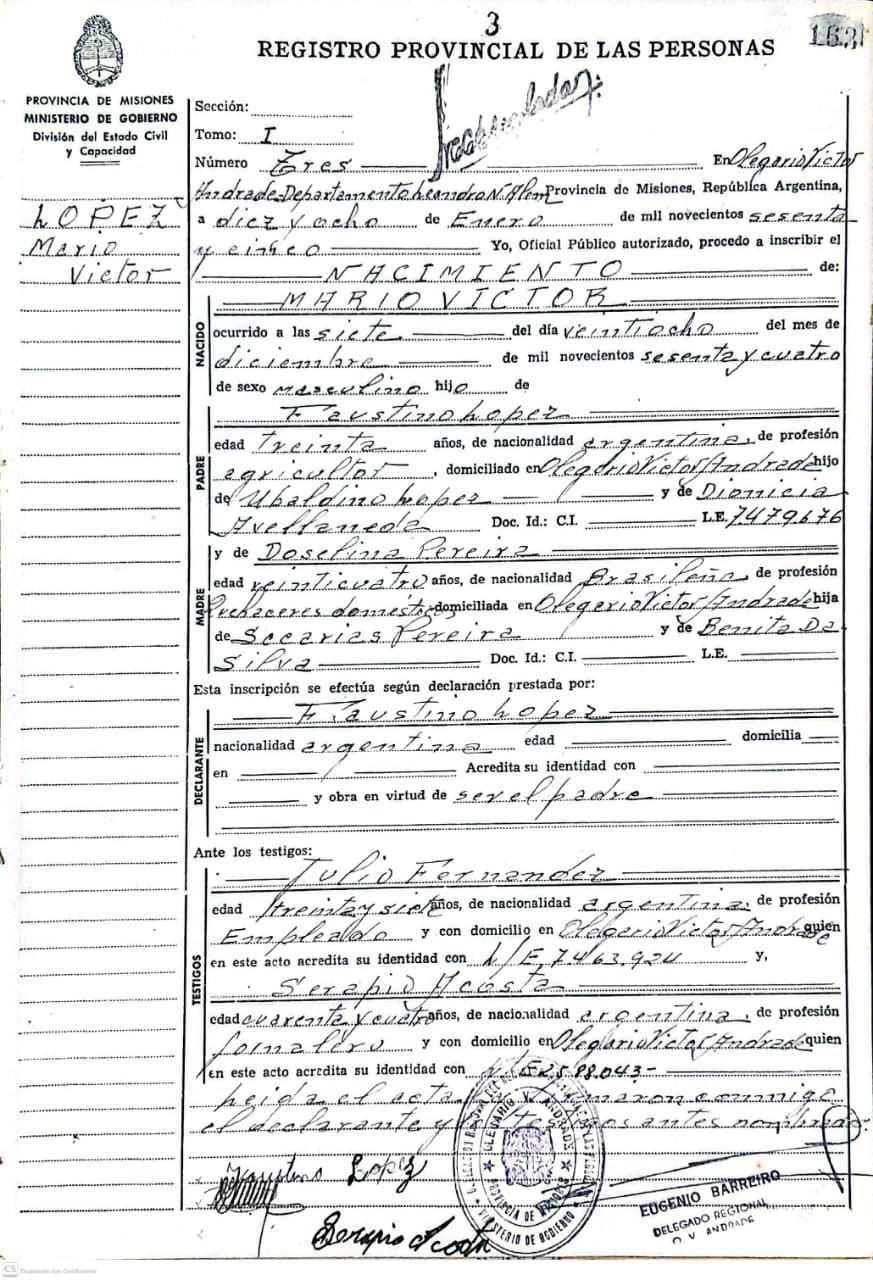 3
163
REGISTRO PROVINCIAL DE LAS PERSONAS
PROVINCIA DE MISIONES
MINISTERIO DE GOBIERNO
División del Estado Civil
y Capacidad
LOPEZ
Mario
Victor
Sección:
Tomo: I
Número Tres En Olegario Victor
Andrade-Departamento Leandro N. Alem Provincia de Misiones, República Argentina,
a diez y ocho de Enero de mil novecientos sesenta
y cinco Yo, Oficial Público autorizado, procedo a inscribir el
NACIMIENTO de:
NACIDO
MARIO VICTOR
ocurrido a las siete del día veintiocho del mes de
diciembre de mil novecientos sesenta y cuatro
de sexo masculino hijo de
PADRE
Faustino Lopez
edad treinta años, de nacionalidad argentina, de profesión
agricultor, domiciliado en Olegario Victor Andrade hijo
de Ubaldino Lopez y de Dionicia
Avellaneda Doc. Id.: C.I. L.E. 7479676
MADRE
y de Doselina Pereira
edad veinticuatro años, de nacionalidad Brasileña, de profesión
Quehaceres domésticos domiciliada en Olegario Victor Andrade hija
de Socarias Pereira y de Benita Da
Silva Doc. Id.: C.I. L.E.
Esta inscripción se efectúa según declaración prestada por:
DECLARANTE
Faustino Lopez
nacionalidad argentina edad domicilia
en Acredita su identidad con
y obra en virtud de ser el padre
Ante los testigos:
TESTIGOS
Julio Fernandez
edad treinta y siete años, de nacionalidad argentina, de profesión
Empleado y con domicilio en Olegario Victor Andrade quien
en este acto acredita su identidad con L/E. 7.463.924 y,
Serapio Acosta
edad cuarenta y cuatro años, de nacionalidad argentina, de profesión
Jornalero y con domicilio en Olegario Victor Andrade quien
en este acto acredita su identidad con
Leida el acta firmaron conmigo
el declarante y los testigos antes nombrado.
Faustino Lopez
Serapio Acosta
OLEGARIO V. ANDRADE
PROVINCIA DE MISIONES
MINISTERIO DE GOBIERNO
EUGENIO BARREIRO
DELEGADO REGIONAL
O. V. ANDRADE
CS Escaneado con CamScanner